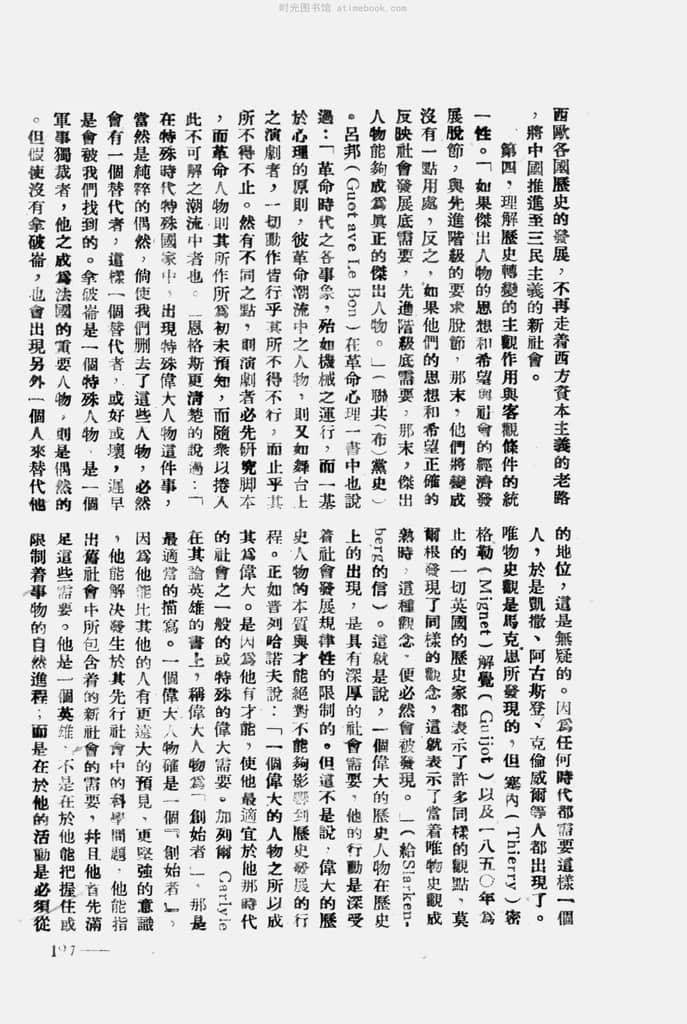 时光图书馆 atimebook.com
西歐各國歷史的發展，不再走着西方資本主義的老路
，將中國推進至三民主義的新社會。
第四，理解歷史轉變的主觀作用與客觀條件的統
一性。「如果傑出人物的思想和希望與社會的經濟發
展脫節，與先進階級的要求脫節，那末，他們將變成
沒有一點用處，反之，如果他們的思想和希望正確的
反映社會發展底需要，先進階級底需要，那末，傑出
人物能夠成爲眞正的傑出人物。」（聯共（布）黨史）
。呂邦（Guotave Le Bon）在革命心理一書中也說
過：「革命時代之各事象，殆如機械之運行，而一基
於心理的原則，彼革命潮流中之人物，則又如舞台上
之演劇者，一切動作皆行乎其所不得不行，而止乎其
所不得不止。然有不同之點，則演劇者必先硏究脚本
，而革命人物則其所作所爲初未預知，而隨衆以捲入
此不可解之潮流中者也。」恩格斯更淸楚的說過：「
在特殊時代特殊國家中，出現特殊偉大人物這件事，
當然是純粹的偶然，倘使我們删去了這些人物，必然
會有一個替代者，這樣一個替代者，或好或壞，遲早
是會被我們找到的。拿破崙是一個特殊人物，是一個
軍事獨裁者，他之成爲法國的重要人物，則是偶然的
。但假使沒有拿破崙，也會出現另外一個人來替代他
的地位，這是無疑的。因爲任何時代都需要這樣一個
人，於是凱撒、阿古斯登、克倫威爾等人都出現了。
唯物史觀是馬克思所發現的，但塞內（Thierry）密
格勒（Mignet）解覺（Guijot）以及一八五〇年爲
止的一切英國的歷史家都表示了許多同樣的觀點，莫
爾根發現了同樣的觀念，這就表示了當着唯物史觀成
熟時，這種觀念，便必然會被發現。」（給Starken-
berg的信）。這就是說，一個偉大的歷史人物在歷史
上的出現，是具有深厚的社會需要，他的行動是深受
着社會發展規律性的限制的。但這不是說，偉大的歷
史人物的本質與才能絕對不能夠影響到歷史發展的行
程。正如普列哈諾夫說：「一個偉大的人物之所以成
其爲偉大。是因爲他有才能，使他最適宜於他那時代
的社會之一般的或特殊的偉大需要。加列爾 Carlyie
在其論英雄的書上，稱偉大人物爲「創始者」，那是
最適當的描寫。一個偉大人物確是一個『創始者』，
因爲他能比其他的人有更遠大的預見、更堅強的意識
，他能解决發生於其先行社會中的科學問題，他能指
出舊社會中所包含着的新社會的需要，幷且他首先滿
足這些需要。他是一個英雄，不是在於他能把握住或
限制着事物的自然進程；而是在於他的活動是必須從
197